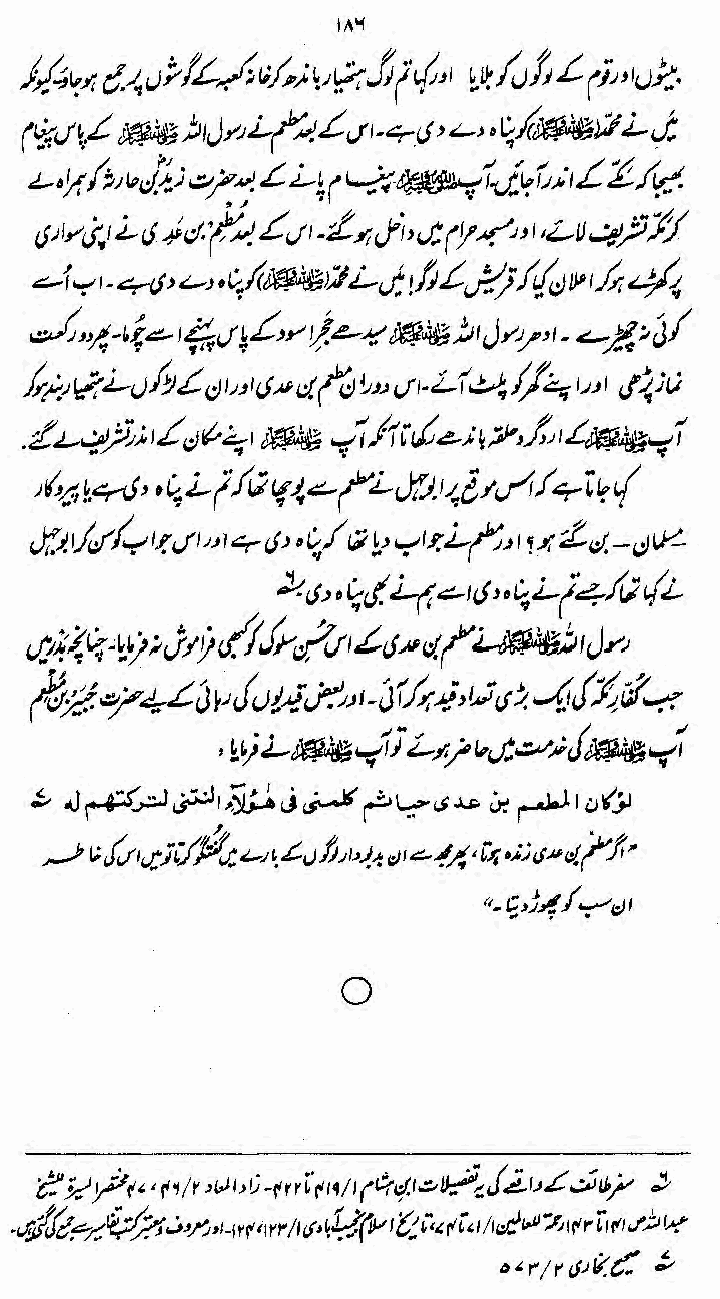 ۱۸۶
بیٹوں اور قوم کے لوگوں کو بلایا اور کہا تم لوگ ہتھیار باندھ کر خانہ کعبہ کے گوشوں پر جمع ہو جاؤ۔ کیونکہ
میں نے محمد (ﷺ) کو پناہ دے دی ہے۔ اس کے بعد مطعم نے رسول اللہ ﷺ کے پاس پیغام
بھیجا کہ مکے کے اندر آجائیں۔ آپ ﷺ پیغام پانے کے بعد حضرت زیدؓ بن حارثہ کو ہمراہ لے
کر مکہ تشریف لائے، اور مسجد حرام میں داخل ہو گئے۔ اس کے بعد مُطْعِم بن عَدِی نے اپنی سواری
پر کھڑے ہو کر اعلان کیا کہ قریش کے لوگو! میں نے محمد (ﷺ) کو پناہ دے دی ہے۔ اب اُسے
کوئی نہ چھیڑے ۔ ادھر رسول اللہ ﷺ سیدھے حَجَرِ اسود کے پاس پہنچے اسے چُوما۔ پھر دو رکعت
نماز پڑھی اور اپنے گھر کو پلٹ آئے۔ اس دوران مطعم بن عدی اور ان کے لڑکوں نے ہتھیار بند ہو کر
آپ ﷺ کے ارد گرد حلقہ باندھے رکھا تا آنکہ آپ ﷺ اپنے مکان کے اندر تشریف لے گئے۔
کہا جاتا ہے کہ اس موقع پر ابوجہل نے مطعم سے پوچھا تھا کہ تم نے پناہ دی ہے یا پیروکار
– مسلمان – بن گئے ہو؟ اور مطعم نے جواب دیا تھا کہ پناہ دی ہے اور اس جواب کو سن کر ابوجہل
نے کہا تھا کہ جسے تم نے پناہ دی اسے ہم نے بھی پناہ دی ۶ے
رسول اللہ ﷺ نے مطعم بن عدی کے اس حُسنِ سلوک کو کبھی فراموش نہ فرمایا۔ چنانچہ بَدْر میں
جب کُفّارِ مکہ کی ایک بڑی تعداد قید ہو کر آئی۔ اور بعض قیدیوں کی رہائی کے لیے حضرت جُبَیْرؓ بن مُطْعِم
آپ ﷺ کی خدمت میں حاضر ہوئے تو آپ ﷺ نے فرمایا؛
لو كان المطعم بن عدى حيا ثم كلمنى فى هؤلاء النتنى لتركتهم له ۷ے
"اگر مطعم بن عدی زندہ ہوتا، پھر مجھ سے ان بدبودار لوگوں کے بارے میں گفتگو کرتا تو میں اس کی خاطر
ان سب کو چھوڑ دیتا۔"
۶ے سفر طائف کے واقعے کی یہ تفصیلات ابن ہشام ۱/۴۱۹ تا ۴۲۲۔ زاد المعاد ۲/۴۶، ۴۷ مختصر السیرۃ للشیخ
عبداللہ ص ۱۴۱ تا ۱۴۳، رحمۃ للعالمین ۱/۷۱ تا ۷۴، تاریخ اسلام نجیب آبادی ۱/۱۲۳، ۱۲۴۔ اور معروف و معتبر کتب تفاسیر سے جمع کی گئی ہیں۔
۷ے صحیح بخاری ۲/۵۷۳